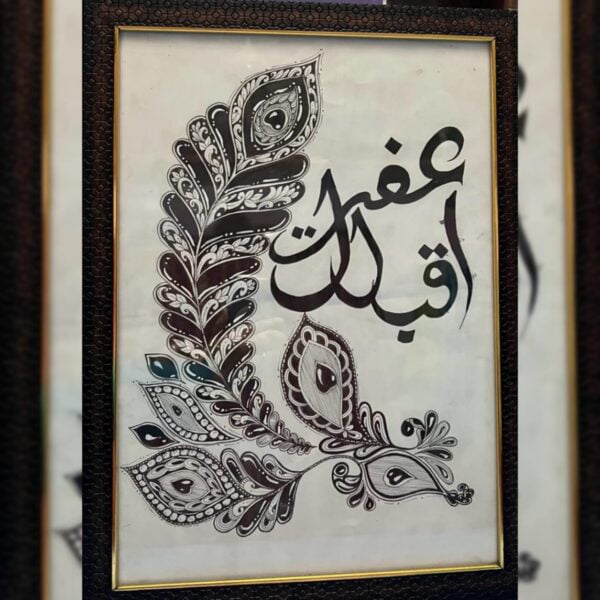 عفت
اقبال